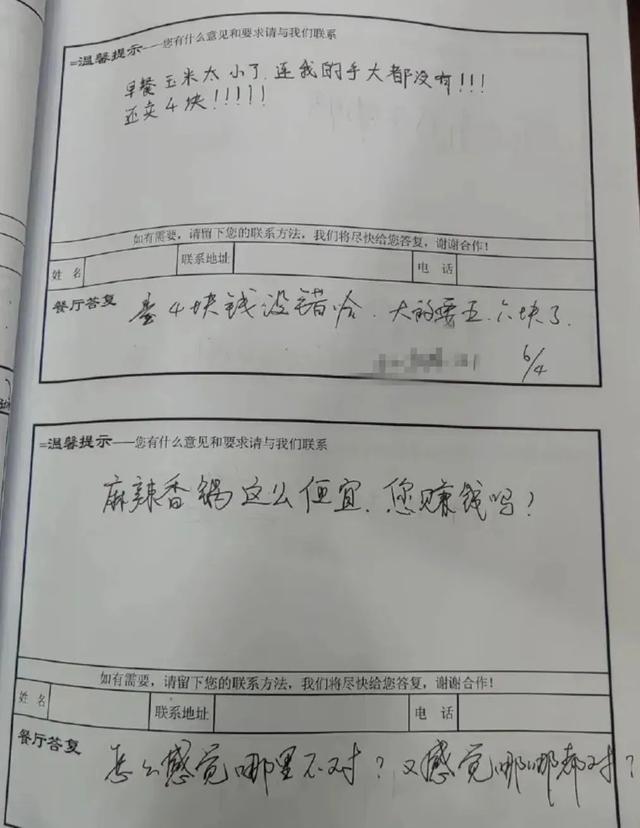 =温馨提示——您有什么意见和要求请与我们联系
早餐玉米太小了,连我的手大都没有!!!
还卖4块!!!!!
如有需要,请留下您的联系方法,我们将尽快给您答复,谢谢合作!
姓 名 联系地址 电 话
餐厅答复 卖4块钱没错哈.大的要五.六块了.
6/4
=温馨提示——您有什么意见和要求请与我们联系
麻辣香锅这么便宜.您赚钱吗?
如有需要,请留下您的联系方法,我们将尽快给您答复,谢谢合作!
姓 名 联系地址 电 话
餐厅答复 怎么感觉哪里不对?又感觉哪哪都对?